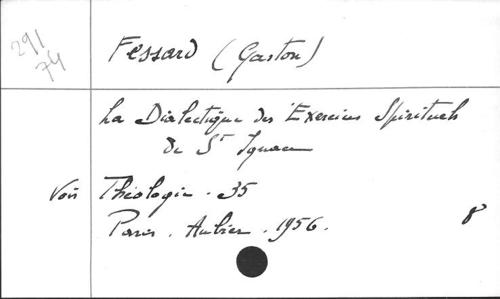 291
74
Fessard (Gaston)
La Dialectique des Exercices Spirituels
de St Ignace
Voir Théologie . 35
Paris . Aubier . 1956.
8°